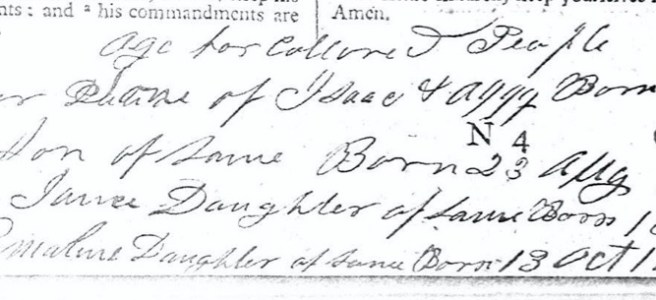 nts: and ª his commandments are
Amen.
Age for Collored People
of Isaac & Aggy Born
N 4
son of Same Born 23 Aug
Daughter of Same Born 1
Daughter of Same Born 13 Oct 1